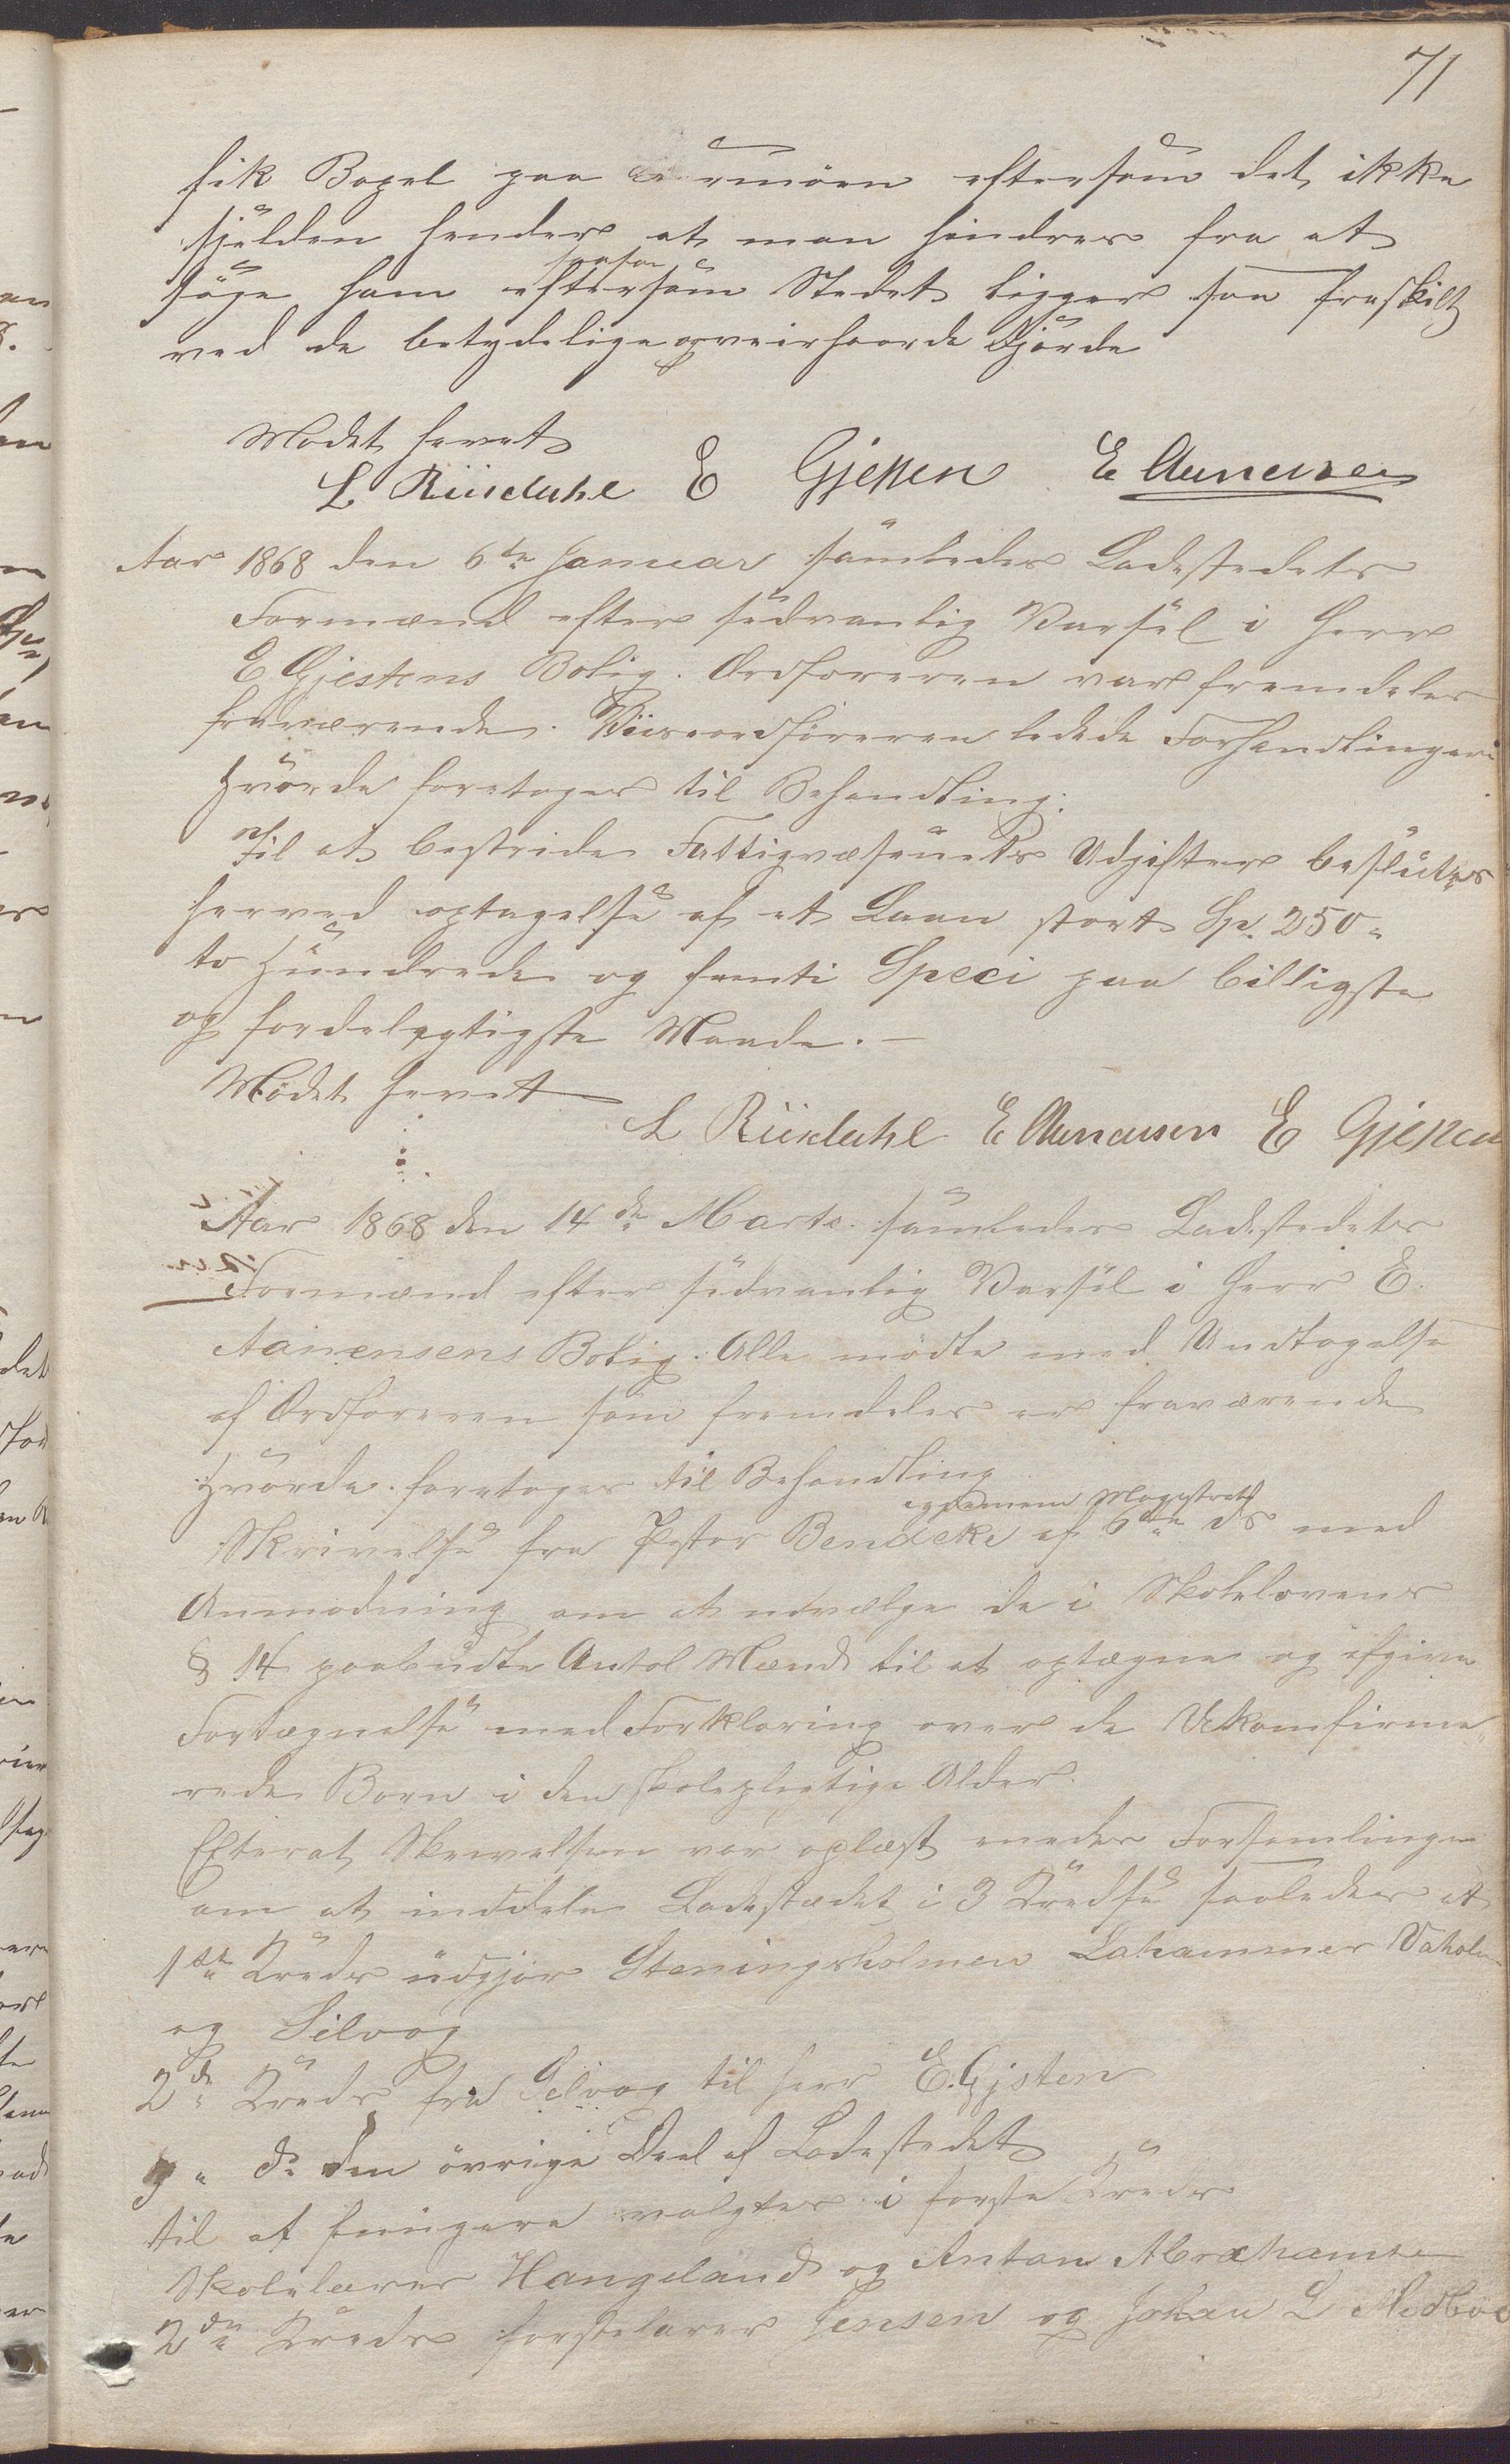 71
fik Bopel paa eftersom det ikke
sjelden hender at man hindres fra at
søge ham eftersom Stedet ligger saa fraskilt
ved de betydelige og veirhaarde Fjorde
Mødet hevet
L. Riisdahl E Gjesten E Aanensen
Aar 1868 den 6te Januar samledes Ladestedets
Formænd efter sedvanlig Varsel i Herr
E Gjestens Bolig. Ordføreren var fremdeles
fraværende. Viceordføreren ledede Forhandlingerne
Hvorda foretoges til Behandling:
Til at bestride Fattigvæsenets Udgifter besluttes
herved optagelse af et Laan stort Sp. 250 "
to Hundrede og femti Speci paa billigste
og fordelagtigste Maade. –
Mødet hevet
L Riisdahl E Aanensen E Gjesten
Aar 1868 den 14de Marts samledes Ladestedets
Formænd efter sedvanlig Varsel i Herr E.
Aanensens Bolig. Alle mødte med Undtagelse
af Ordføreren som fremdeles er fraværende
Hvorda foretoges til Behandling
Magistrats
Skrivelse fra Pastor Bendeke af 6te ds med
Anmodning om at udvælge de i Skolelovens
§ 14 paabudte Antal Mænd til at optegne og afgive
Fortegnelse med Forklaring over de Ukomfirme„
rede Børn i den skolepligtige Alder.
Efterat Skrivelsen var oplæst enedes Forsamlingen
om at inddele Ladestædet i 3 Kredse saaledes at
1ste Kreds udgjør Steningsholmen Lahammer Vaholm
og Silvog
2de Kreds fra Selvog til Herr E. Gjsten
3 " do den øvrige Deel af Ladestedet
til at fungere valgtes i første Kreds
Skolelærer Haugeland og Anton Abrahamsen
2den Kreds forstelærer Jensen og Johan L Medbøe